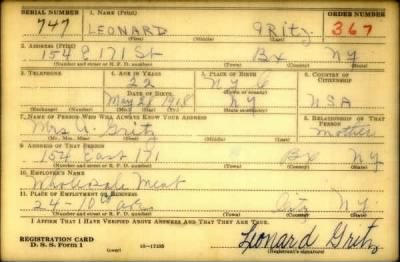 SERIAL NUMBER 1. NAME (Print) ORDER NUMBER
747 LEONARD Gritz 367
(First) (Middle) (Last)
2. ADDRESS (Print)
154 E 171 St Bx NY
(Number and street or R. F. D. number) (Town) (County) (State)
3. TELEPHONE 4. AGE IN YEARS 5. PLACE OF BIRTH 6. COUNTRY OF CITIZENSHIP
22 N Y C
DATE OF BIRTH
May 28 1918 NY USA
(Exchange) (Number) (Mo.) (Day) (Yr.) (State or country)
7. NAME OF PERSON WHO WILL ALWAYS KNOW YOUR ADDRESS 8. RELATIONSHIP OF THAT PERSON
Mrs A. Gritz Mother
(Mr., Mrs., Miss) (First) (Middle) (Last)
9. ADDRESS OF THAT PERSON
154 East 171 Bx NY
(Number and street or R. F. D. number) (Town) (County) (State)
10. EMPLOYER'S NAME
Wholesale Meat
11. PLACE OF EMPLOYMENT OR BUSINESS
24-10th Ave City NY
(Number and street or R. F. D. number) (Town) (County) (State)
I AFFIRM THAT I HAVE VERIFIED ABOVE ANSWERS AND THAT THEY ARE TRUE.
REGISTRATION CARD
D. S. S. Form 1 (over) 16-17105 Leonard Gritz
(Registrant's signature)